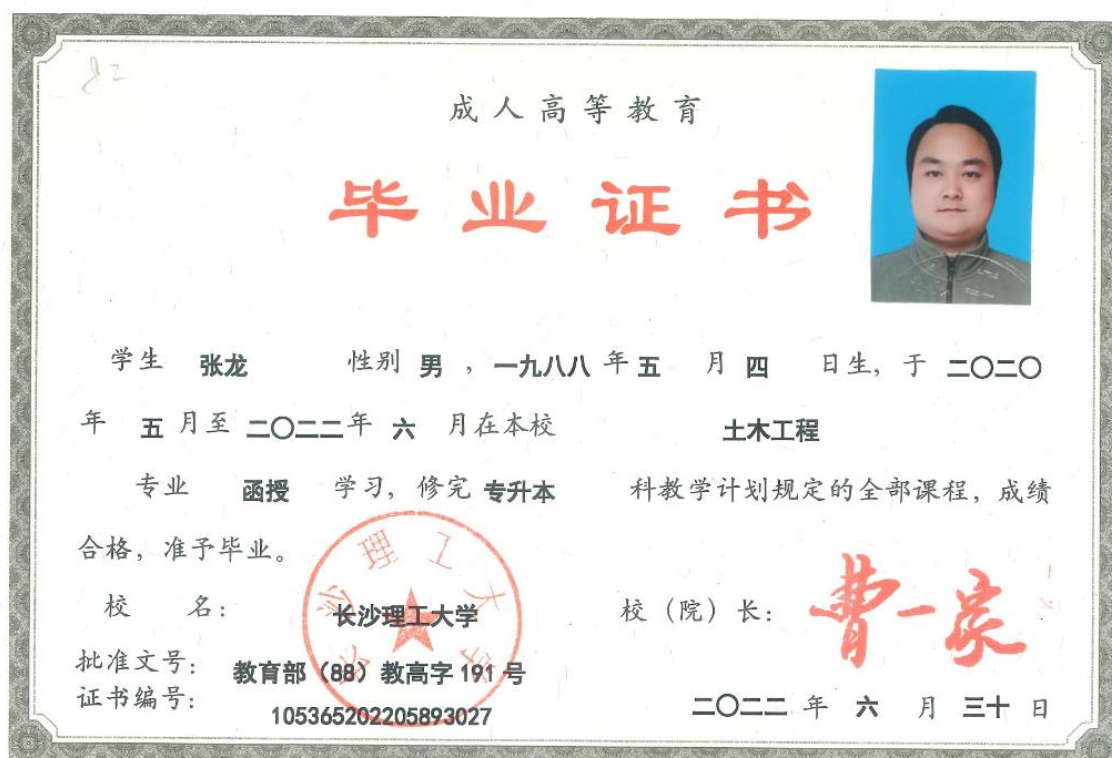 82
成人高等教育
毕业证书
学生 张龙 性别 男 ，一九八八 年 五 月 四 日生，于 二〇二〇
年 五 月至 二〇二二 年 六 月在本校 土木工程
专业 函授 学习，修完 专升本 科教学计划规定的全部课程，成绩
合格，准予毕业。
校 名： 长沙理工大学 校（院）长： 曹一家
长沙理工大学
批准文号： 教育部（88）教高字 191 号
证书编号： 105365202205893027
二〇二二 年 六 月 三十 日